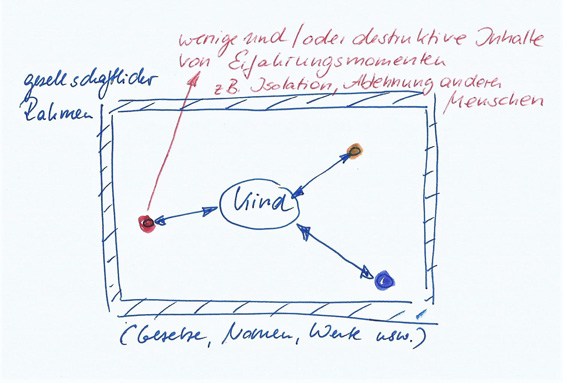 wenige und/oder destruktive Inhalte
von Erfahrungsmomenten
z.B. Isolation, Ablehnung anderer
Menschen
gesellschaftlicher
Rahmen
Kind
(Gesetze, Normen, Werte usw.)